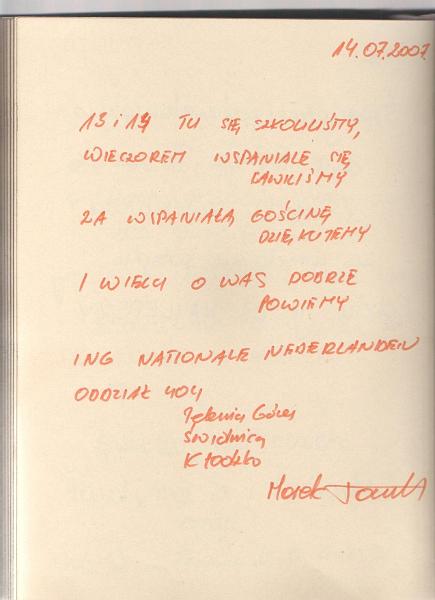 14.07.2007
13 i 14 TU SIĘ SZKOLILIŚMY,
WIECZOREM WSPANIALE SIĘ
BAWILIŚMY
ZA WSPANIAŁĄ GOŚCINĘ
DZIĘKUJEMY
I WIELU O WAS DOBRZE
POWIEMY
ING NATIONALE NEDERLANDEN
ODDZIAŁ 404
Jelenia Góra
Świdnica
Kłodzko
Marek